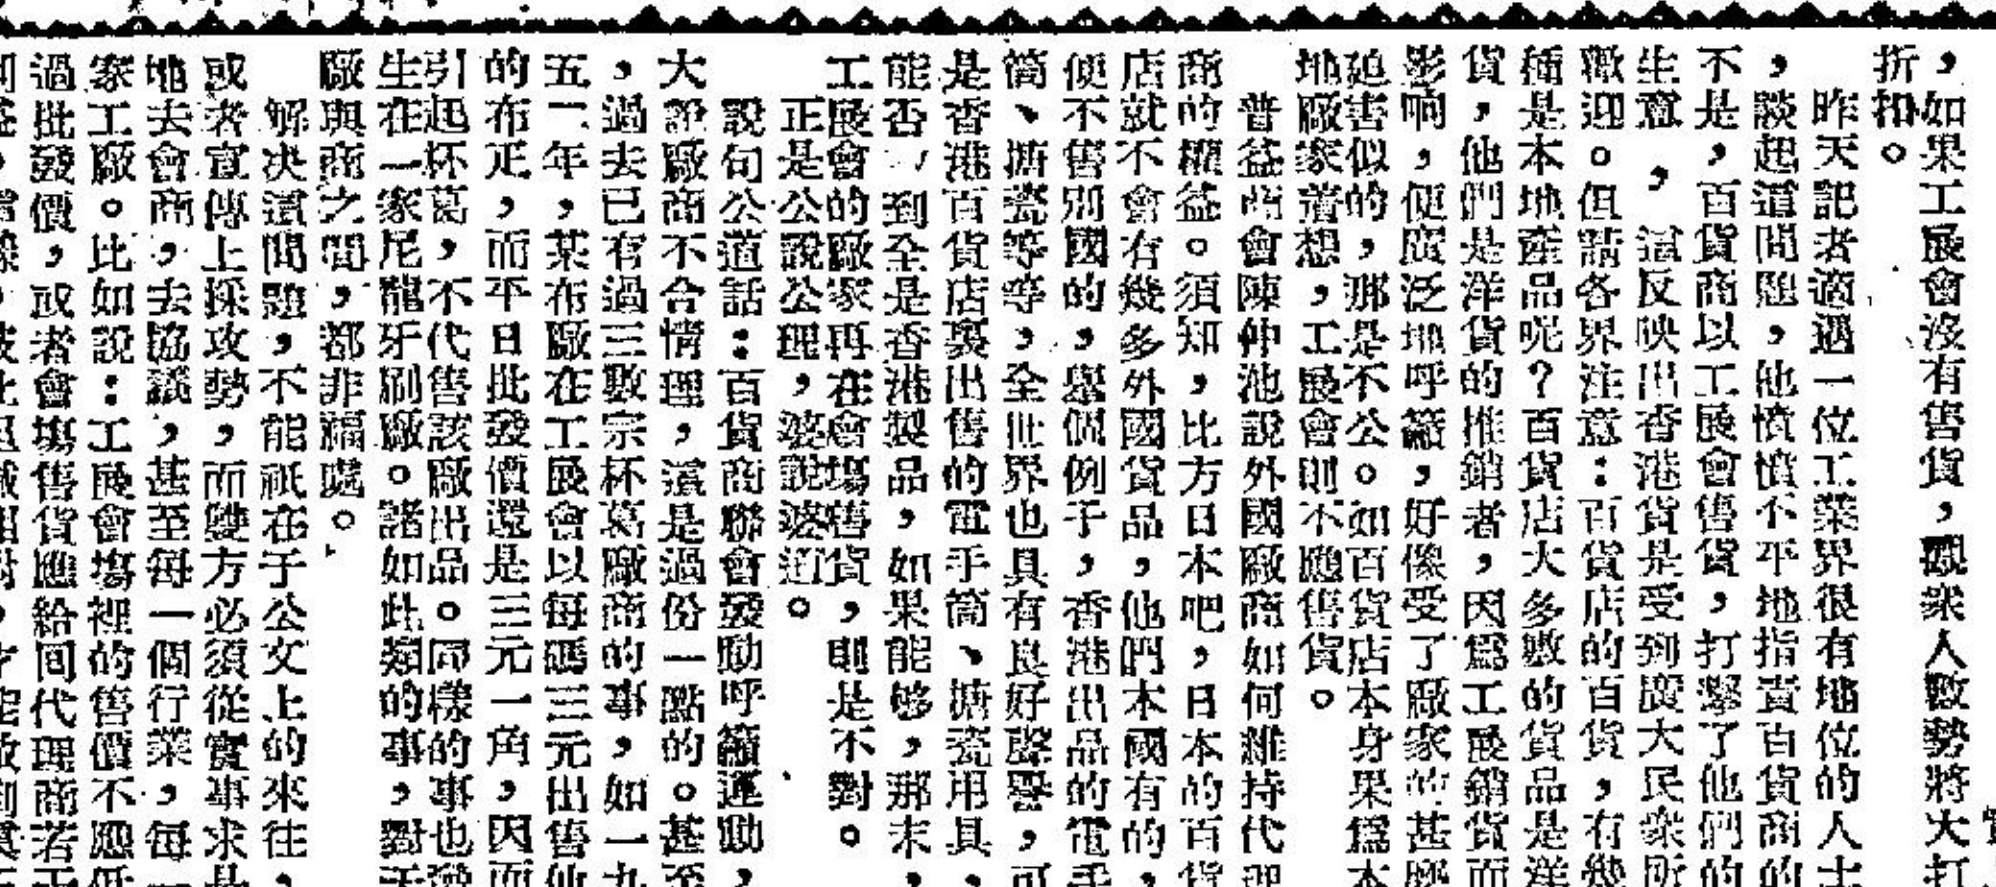 ，如果工展會沒有售貨，觀衆人數勢將大打
折扣。
昨天記者適遇一位工業界很有地位的人士
，談起這問題，他憤憤不平地指責百貨商的
不是，百貨商以工展會售貨，打擊了他們的
生意，這反映出香港貨是受到廣大民衆所
歡迎。但請各界注意：百貨店的百貨，有幾
種是本地產品呢？百貨店大多數的貨品是洋
貨，他們是洋貨的推銷者，因爲工展銷貨而
影响，便廣泛地呼籲，好像受了廠家的甚麼
迫害似的，那是不公。如百貨店本身果爲本
地廠家着想，工展會則不應售貨。
普益商會陳仲池說外國廠商如何維持代理
商的權益。須知，比方日本吧，日本的百貨
店就不會有幾多外國貨品，他們本國有的，
便不售別國的，舉個例子，香港出品的電手
筒、搪瓷等等，全世界也具有良好聲譽，可
是香港百貨店裏出售的電手筒、搪瓷用具，
能否　到全是香港製品，如果能够，那末，
工展會的廠家再在會塲售貨，則是不對。
正是公公說公理，婆婆說婆道。
說句公道話：百貨商聯會發動呼籲運動，
大說廠商不合情理，這是過份一點的。甚至
，過去已有過三數宗杯葛廠商的事，如一九
五二年，某布廠在工展會以每碼三元出售他
的布疋，而平日批發價還是三元一角，因而
引起杯葛，不代售該廠出品。同樣的事也發
生在一家尼龍牙刷廠。諸如此類的事，對于
廠與商之間，都非福處。
解决這問題，不能祇在于公文上的來往，
或者宣傳上採攻勢，而雙方必須從實事求是
地去會商，去協議，甚至每一個行業，每一
家工廠。比如說：工展會塲裡的售價不應低
過批發價，或者會塲售貨應給囘代理商若干